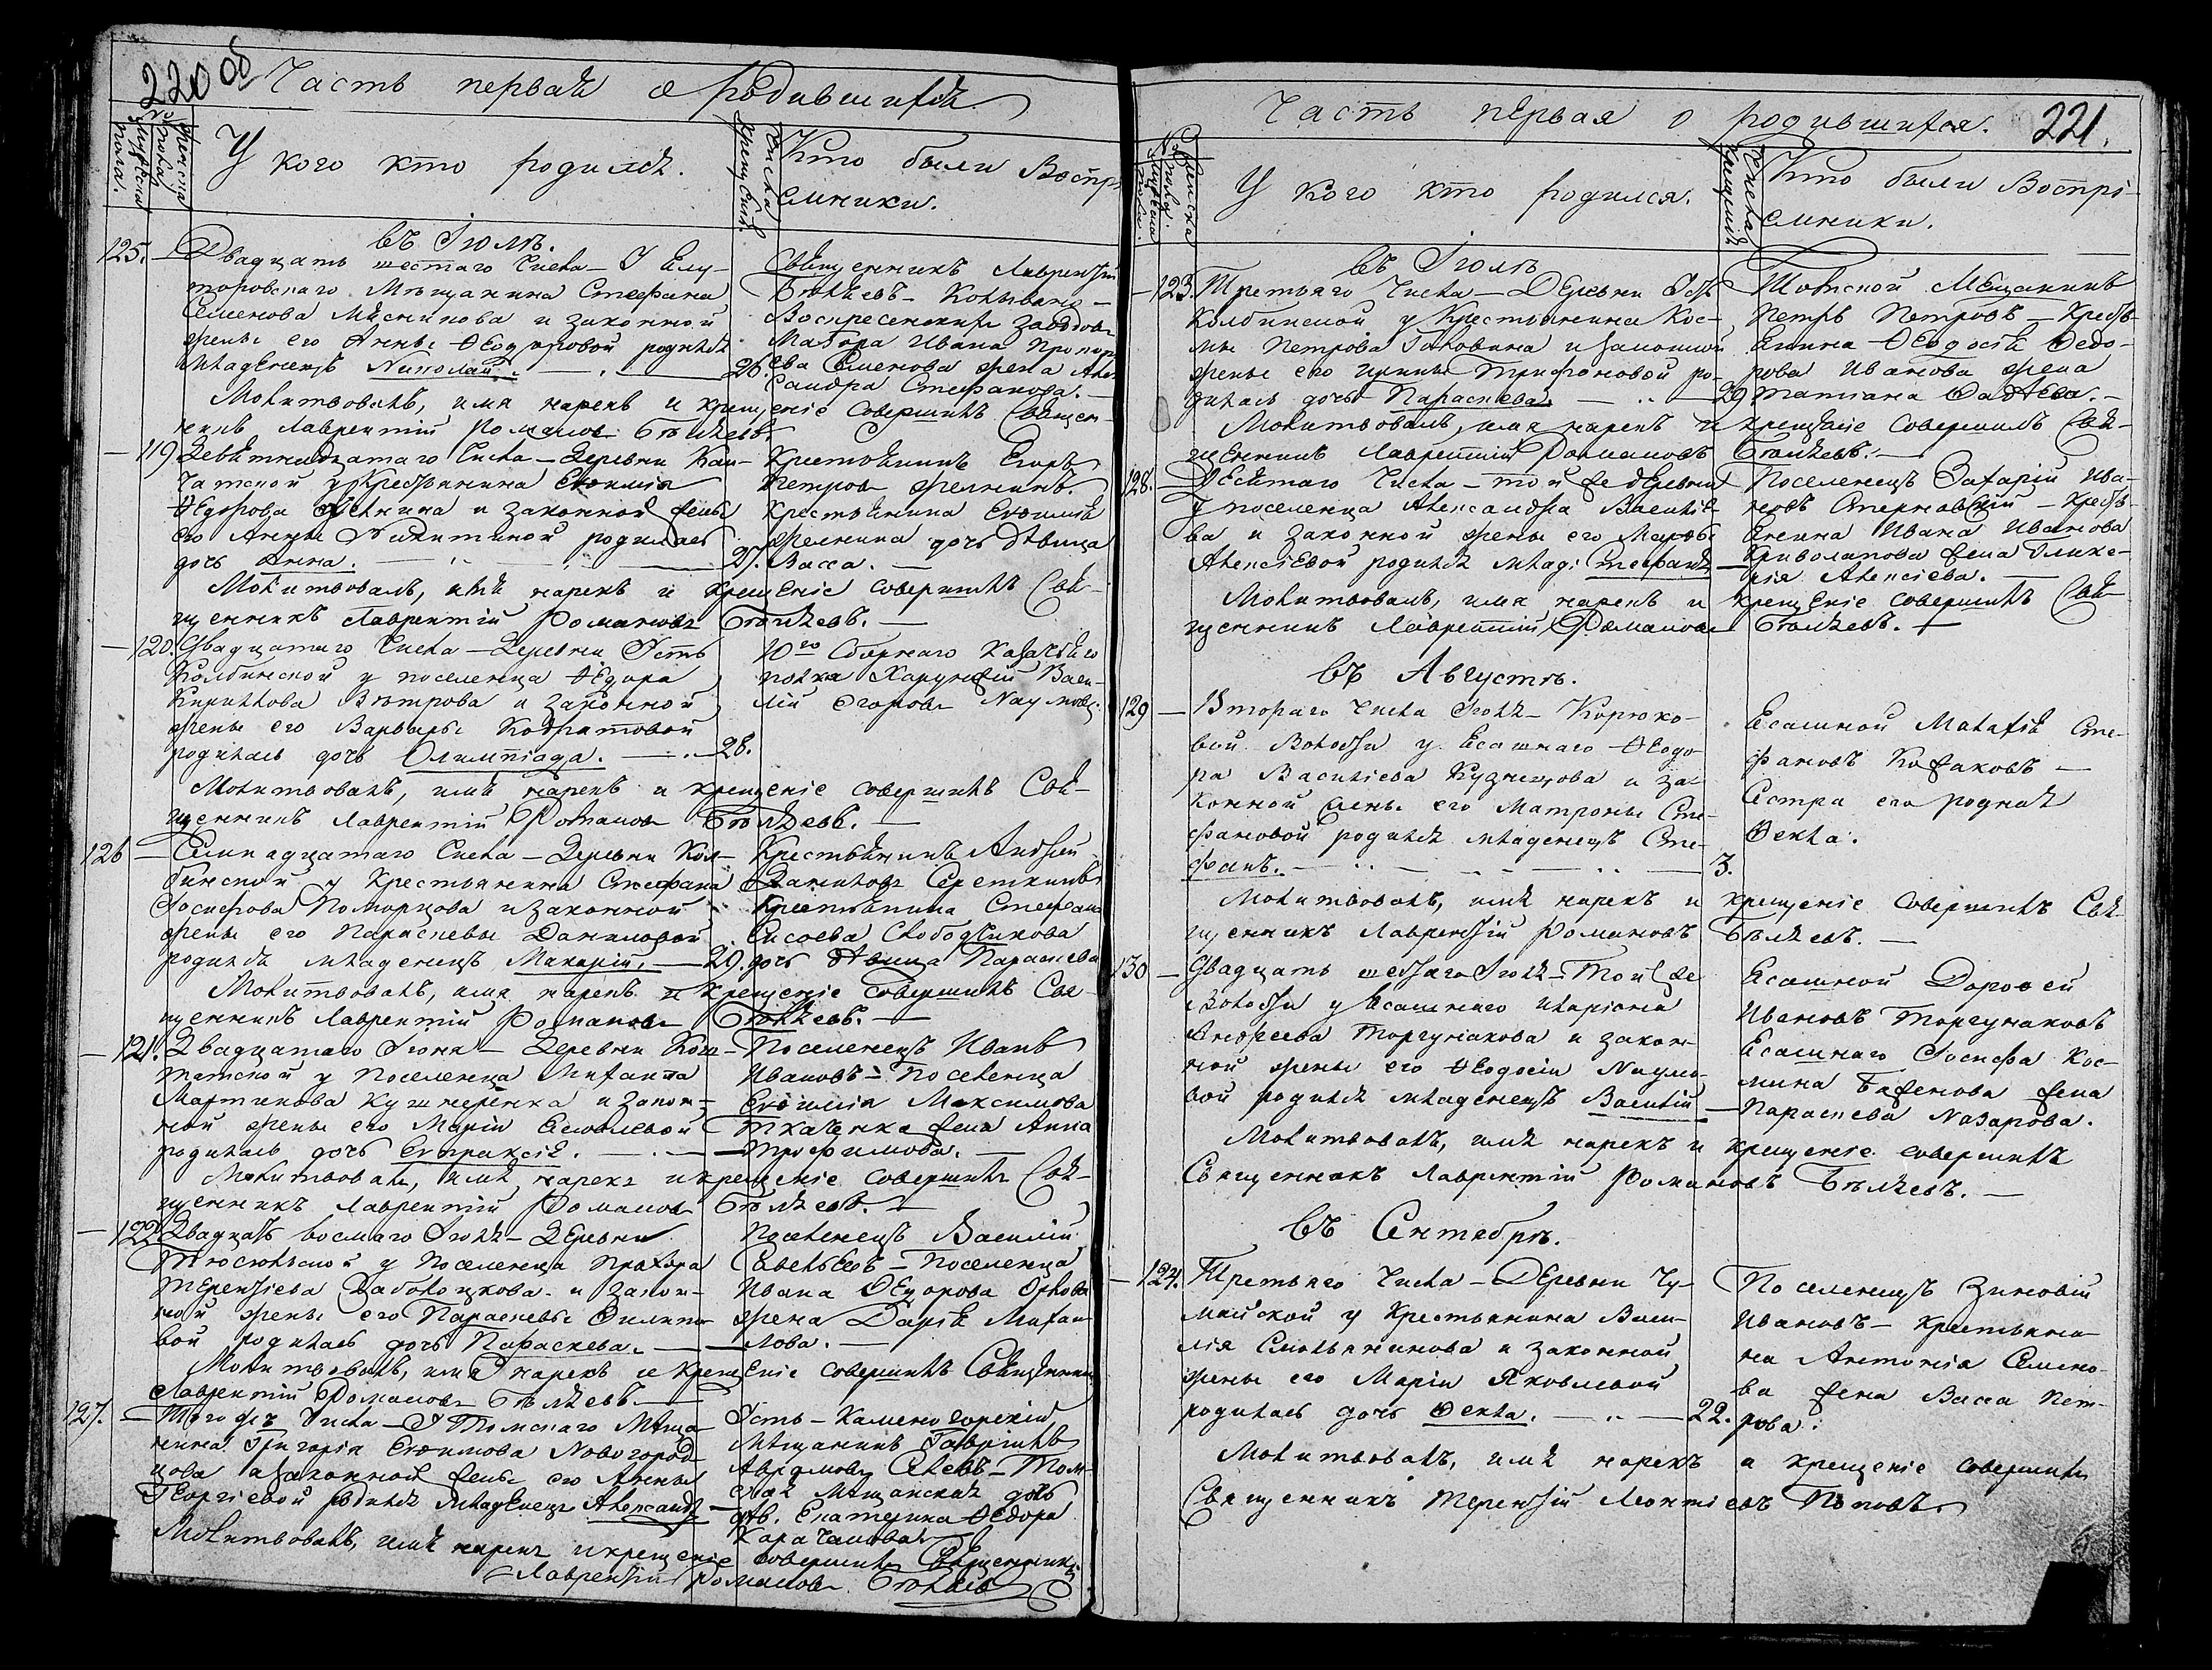 220 об
Часть первая о родившихся.
№ мужеска пола.
женска пола
У кого кто родился.
Число крещенія.
Кто были Воспрі-
емники.
въ Іюлѣ.
125. — Двадцать шестаго Числа — У Ялу-
торовскаго Мѣщанина Стефана
Семенова Мясникова и законной
жены его Анны Ѳеодоровой родился
младенецъ Николай. — 26.
Священникъ Лаврентій
Бѣляевъ — Колывано —
Воскресенскихъ Заводовъ
Маіора Ивана
Семенова жена Алек
сандра Стефанова. —
Молитвовалъ, имя нарекъ и крещеніе совершилъ Священ-
никъ Лаврентій Романовъ Бѣляевъ.
— 119 Девятнадцатаго Числа — Деревни Кан-
чатской у Крестьянина Евѳимія
Ѳедорова Желнина и законной жены
его Анны Никитиной родилась
дочь Анна. — 27.
Крестьянинъ Егоръ
Петровъ Желнинъ.
Крестьянина Евѳимія
Желнина дочь дѣвица
Васса. —
Молитвовалъ, имя нарекъ и крещеніе совершилъ Свя-
щенникъ Лаврентій Романовъ Бѣляевъ. —
— 120. Двадцатаго Числа — Деревни Усть
Колбинской у поселенца Ѳедора
Кирилкова Вѣтрова и законной
жены его Варвары Кодратовой
родилась дочь Олимпіада. — 28.
10го Сборнаго Казачьяго
полка Хорунжій Васи-
лій Егоровъ Наумовъ.
Молитвовалъ, имя нарекъ и крещеніе совершилъ Свя-
щенникъ Лаврентій Романовъ Бѣляевъ. —
126 — Семнадцатаго Числа — Деревни Кол-
бинской у Крестьянина Стефана
Іосифова Поморцова и законной
жены его Параскевы Даниловой
родился младенецъ Макарій. — 29.
Крестьянинъ Андрей
Даниловъ Сереткинъ
Крестьянина Стефана
Сисоева Слободчикова
дочь дѣвица Параскева
Молитвовалъ, имя нарекъ и Крещеніе Совершилъ Свя-
щенникъ Лаврентій Романовъ Бѣляевъ. —
— 121. Двадцатаго Іюня — Деревни Кош-
татской у Поселенца Михаила
Мартинова Кушнеренка и закон-
ной жены его Маріи Емельяновой
родилась дочь Евпраксія. —
Поселенецъ Иванъ
Ивановъ — Поселенца
Евѳимія Максимова
Ткаченка жена Анна
Трофимова. —
Молитвовалъ, имя нарекъ и крещеніе совершилъ Свя-
щенникъ Лаврентій Романовъ Бѣляевъ. —
— 122 Двадцать восмаго Іюля — Деревни
Тюсюльской у Поселенца Прохора
Терентіева Заболоцкова и закон-
ной жены его Параскевы Филипо-
вой родилась дочь Параскева. —
Поселенецъ Василій
Савельевъ — Поселенца
Ивана Ѳедорова Орлова
жена Дарія Михаи-
лова. —
Молитвовалъ, имя нарекъ и Крещеніе совершилъ Священникъ
Лаврентій Романовъ Бѣляевъ. —
127. — Того жъ Числа — У Томскаго Мѣща-
нина Григорія Евѳимова Новогород-
цова и законной жены его Анны
Георгіевой родился Младенецъ Александръ —
Усть-Каменогорскій
Мѣщанинъ Гавріилъ
Авраамовъ — Том-
ская Мѣщанская дочь
дѣв. Екатерина Ѳедора
Карачакова.
Молитвовалъ, имя нарекъ и крещеніе совершилъ Священникъ
Лаврентій Романовъ Бѣляевъ
Часть первая о родившихся. 221.
№ мужеска пола.
женска пола
У кого кто родился.
Числа крещенія
Кто были Воспрі-
емники.
въ Іюлѣ
— 123. Третьяго Числа — Деревни Усть
Колбинской у Крестьянина Кос-
мы Петрова Таковина и законной
жены его Ирины Трифоновой ро-
дилась дочь Параскева. — 29
Томской Мѣщанинъ
Петръ Петровъ — Кресть-
янина Ѳеодосія Ѳедо-
рова Иванова жена
Татіана Фадѣева. —
Молитвовалъ, имя нарекъ и крещеніе совершилъ Свя-
щенникъ Лаврентій Романовъ Бѣляевъ. —
128. — Десятаго Числа — той же деревни
У поселенца Александра Василіе-
ва и законной жены его Марѳы
Алексіевой родился млад: Стефанъ —
Поселенецъ Захарій Ива-
новъ Стерновскій — Кресть-
янина Ивана Иванова
Криволапова жена Глике-
рія Алексіева. —
Молитвовалъ, имя нарекъ и крещеніе совершилъ Свя-
щенникъ Лаврентій Романовъ Бѣляевъ. —
въ Августѣ.
129 — Втораго Числа Іюля — Корюко-
вой Волости у Ясашнаго Ѳеодо-
ра Василіева Кузнецова и за-
конной жены его Матроны Сте-
фановой родился младенецъ Сте-
фанъ. — 3.
Ясашной Малахія Сте-
фановъ Кожаковъ —
Сестра его родная
Ѳекла.
Молитвовалъ, имя нарекъ и крещеніе совершилъ Свя-
щенникъ Лаврентій Романовъ Бѣляевъ. —
130 — Двадцать шестаго Іюля — Той же
Волости у Ясашнаго Иларіона
Андреева Торгунакова и закон-
ной жены его Ѳеодосіи Наумо-
вой родился младенецъ Василій —
Ясашной Дороѳей
Ивановъ Торгунаковъ
Ясашнаго Іосифа Кос-
мина Баженова жена
Параскева Назарова.
Молитвовалъ, имя нарекъ и крещеніе совершилъ
Священникъ Лаврентій Романовъ Бѣляевъ. —
въ Сентябрѣ.
— 124. Третьяго Числа — Деревни Чу-
майской у Крестьянина Васи-
лія Смольянинова и законной
жены его Маріи Яковлевой
родилась дочь Ѳекла. — 22.
Поселенецъ Зиновій
Ивановъ — Крестьяни-
на Антонія Семено-
ва жена Васса Пет-
рова.
Молитвовалъ, имя нарекъ и крещеніе совершилъ
Священникъ Терентій Леонтіевъ Поповъ.